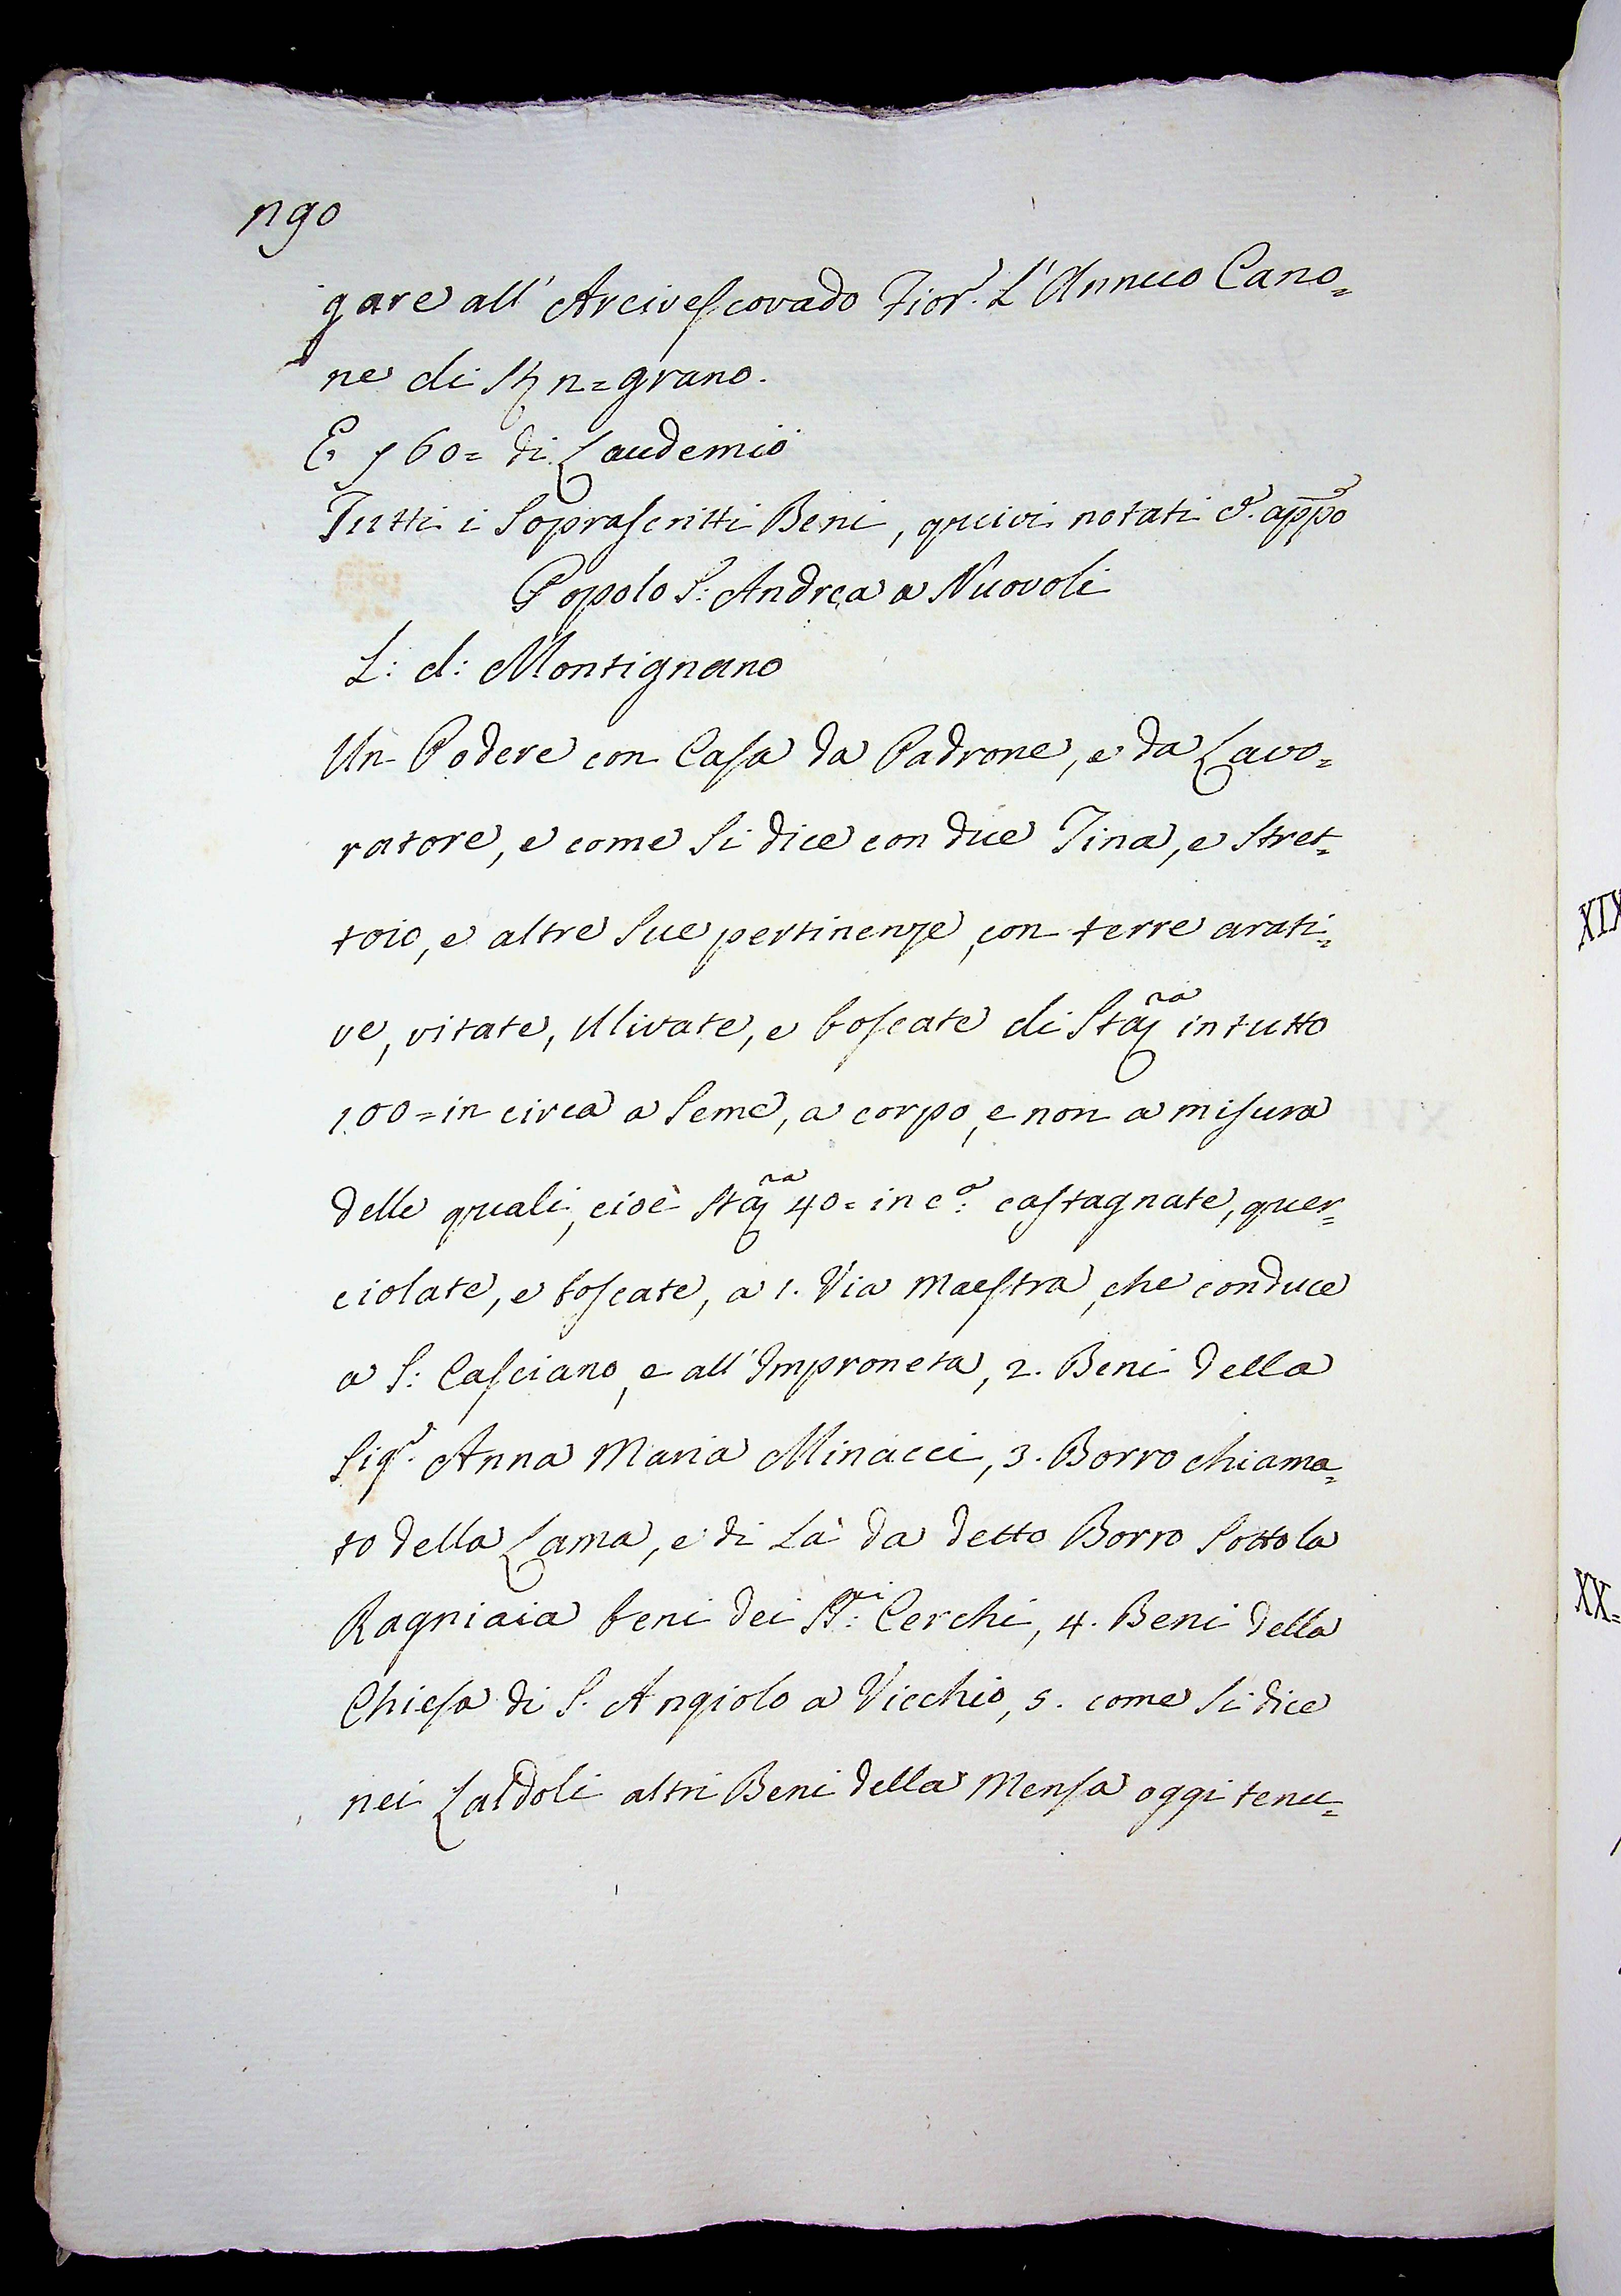 190
gare all' Arcivescovado Fior.º L' Annuo Cano=
ne di St 12= grano.
E ƒ 60= di Laudemio
Tutti i Soprascritti Beni, quivi notati
Popolo S: Andrea a Nuovoli
L: d: Montignano
Un Podere con Casa da Padrone, e da Lavo=
ratore, e come Si dice con due Tina, e Stret=
toio, e altre Sue pertinenze, con terre arati=
ve, vitate, Ulivate, e boscate di Staª in tutto
100= in circa a Seme, a corpo, e non a misura
delle quali, cioè Staª 40= in cª: castagnate, quer=
ciolate, e boscate, a 1. Via Maestra, che conduce
a S: Casciano, e all' Impruneta, 2. Beni della
Sigª. Anna Maria Minacci, 3. Borro chiama=
to della Lama, e di Là da detto Borro Sotto la
Ragniaia beni dei SSri: Cerchi, 4. Beni della
Chiesa di S. Angiolo a Vicchio, 5. come Si dice
nei Laldoli altri Beni della Mensa oggi tenu=
XIX
XX=